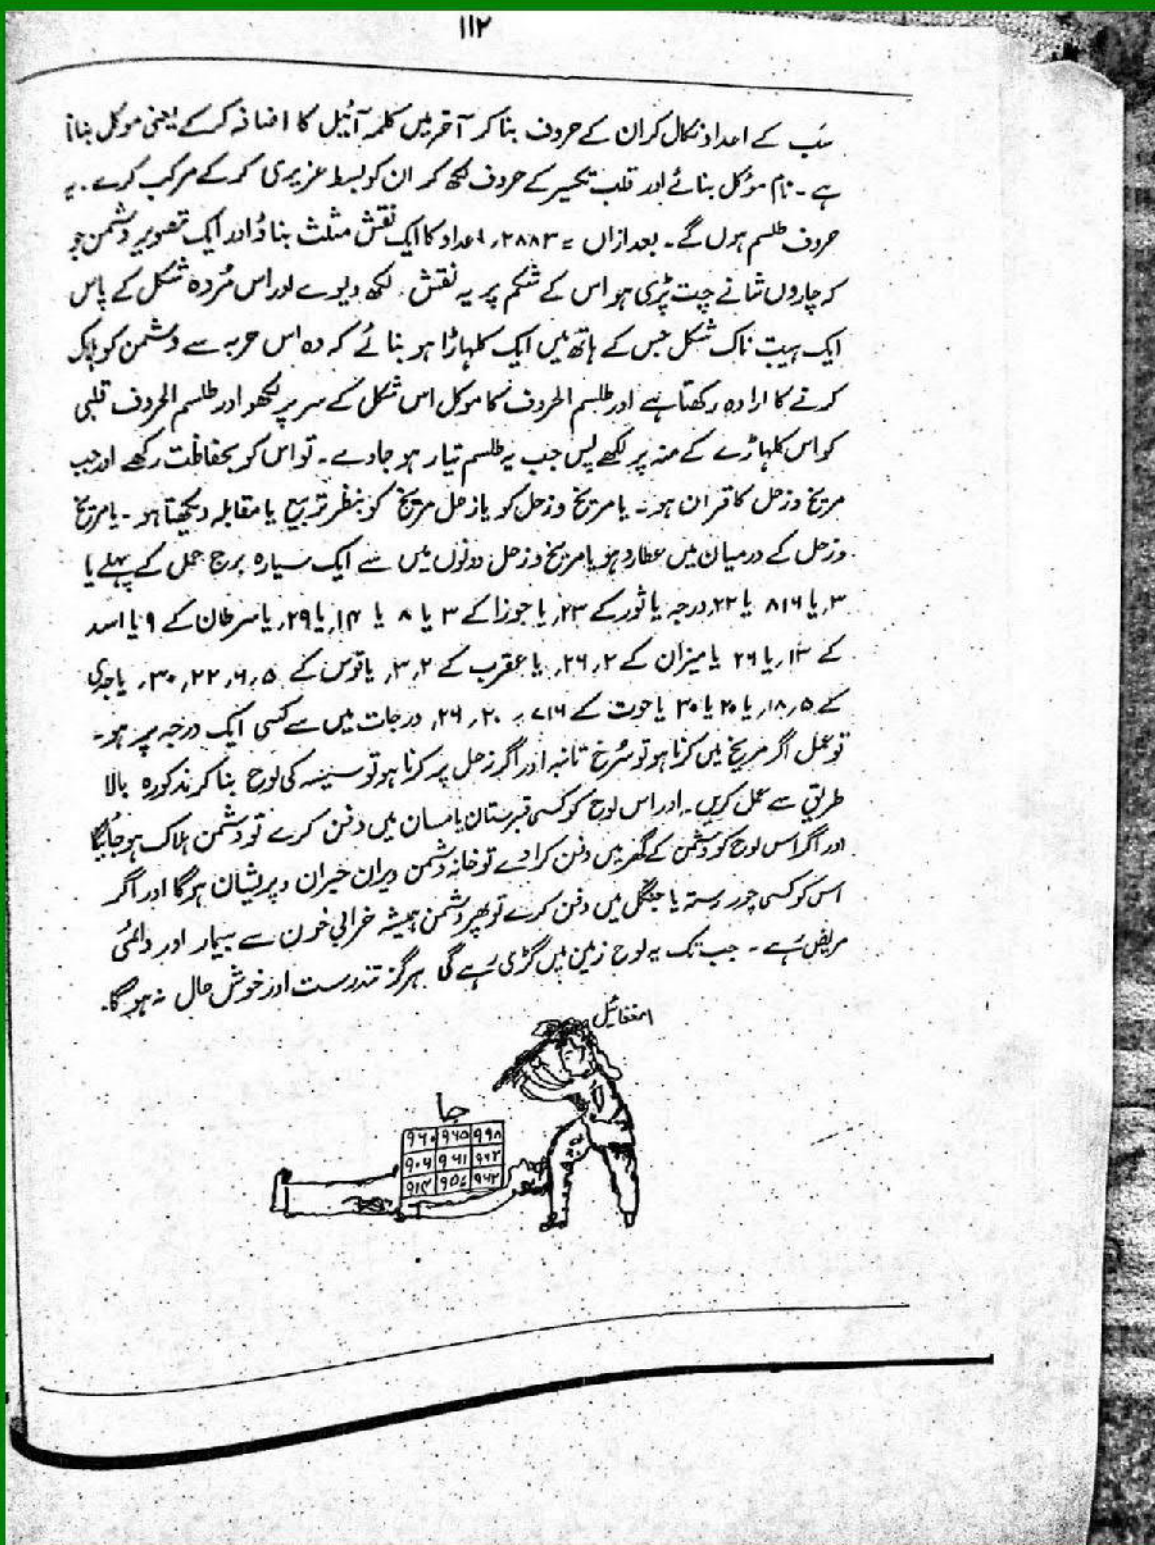 ۱۱۲
سَب کے اعداد نکال کر ان کے حروف بنا کر آخر میں کلمہ آئیل کا اضافہ کر کے یعنی موکل بنانا
ہے۔ نام مؤکل بنائے اور قلب تکسیر کے حروف لکھ کر ان کو بسط عزیزی کر کے مرکب کرے۔ یہ
حروف طلسم ہوں گے۔ بعد ازاں = ۲۸۸۳ اعداد کا ایک نقش مثلث بناؤ اور ایک تصویر دشمن جو
کہ چاروں شانے چت پڑی ہو اس کے شکم پر یہ نقش لکھ دیوے اور اس مُردہ شکل کے پاس
ایک ہیبت ناک شکل جس کے ہاتھ میں ایک کلہاڑا ہو بنائے کہ وہ اس حربہ سے دشمن کو ہلاک
کرنے کا ارادہ رکھتا ہے اور طلسم الحروف کا موکل اس شکل کے سر پر لکھو اور طلسم الحروف قلبی
کو اس کلہاڑے کے منہ پر لکھے پس جب یہ طلسم تیار ہو جاوے۔ تو اس کو بحفاظت رکھے اور جب
مریخ وزحل کا قران ہو۔ یا مریخ وزحل کو یا زحل مریخ کو بنظر تربیع یا مقابلہ دیکھتا ہو۔ یا مریخ
وزحل کے درمیان میں عطارد ہو یا مریخ وزحل دونوں میں سے ایک سیارہ برج حمل کے پہلے یا
۳، یا ۸۱۶ یا ۲۲، درجہ یا ثور کے ۲۳، یا جوزا کے ۳ یا ۸ یا ۱۴، یا ۲۹، یا سرطان کے ۹ یا اسد
کے ۱۳، یا ۲۶ یا میزان کے ۲، ۲۶، یا عقرب کے ۲، ۳، یا قوس کے ۵، ۶، ۲۲، ۳۰، یا جدی
کے ۵، ۱۸، یا ۲۰ یا ۳۰ یا حوت کے ۲۰، ۲۶، درجات میں سے کسی ایک درجہ پر ہو۔
تو عمل اگر مریخ میں کرنا ہو تو سُرخ تانبہ اور اگر زحل پر کرنا ہو تو سیسہ کی لوح بنا کر مذکورہ بالا
طریق سے عمل کریں۔ اور اس لوح کو کسی قبرستان یا مسان میں دفن کرے تو دشمن ہلاک ہو جائیگا
اور اگر اس لوح کو دشمن کے گھر میں دفن کراوے تو خانہ دشمن ویران حیران و پریشان ہوگا اور اگر
اس کو کسی چور رستہ یا جنگل میں دفن کرے تو پھر دشمن ہمیشہ خرابی خون سے بیمار اور دائمی
مریض رہے۔ جب تک یہ لوح زمین میں گڑی رہے گی ہرگز تندرست اور خوش حال نہ ہوگا۔
جا
۹۶۰ ۹۶۵ ۹۹۸
۹۰۶ ۹۶۱ ۹۶۲